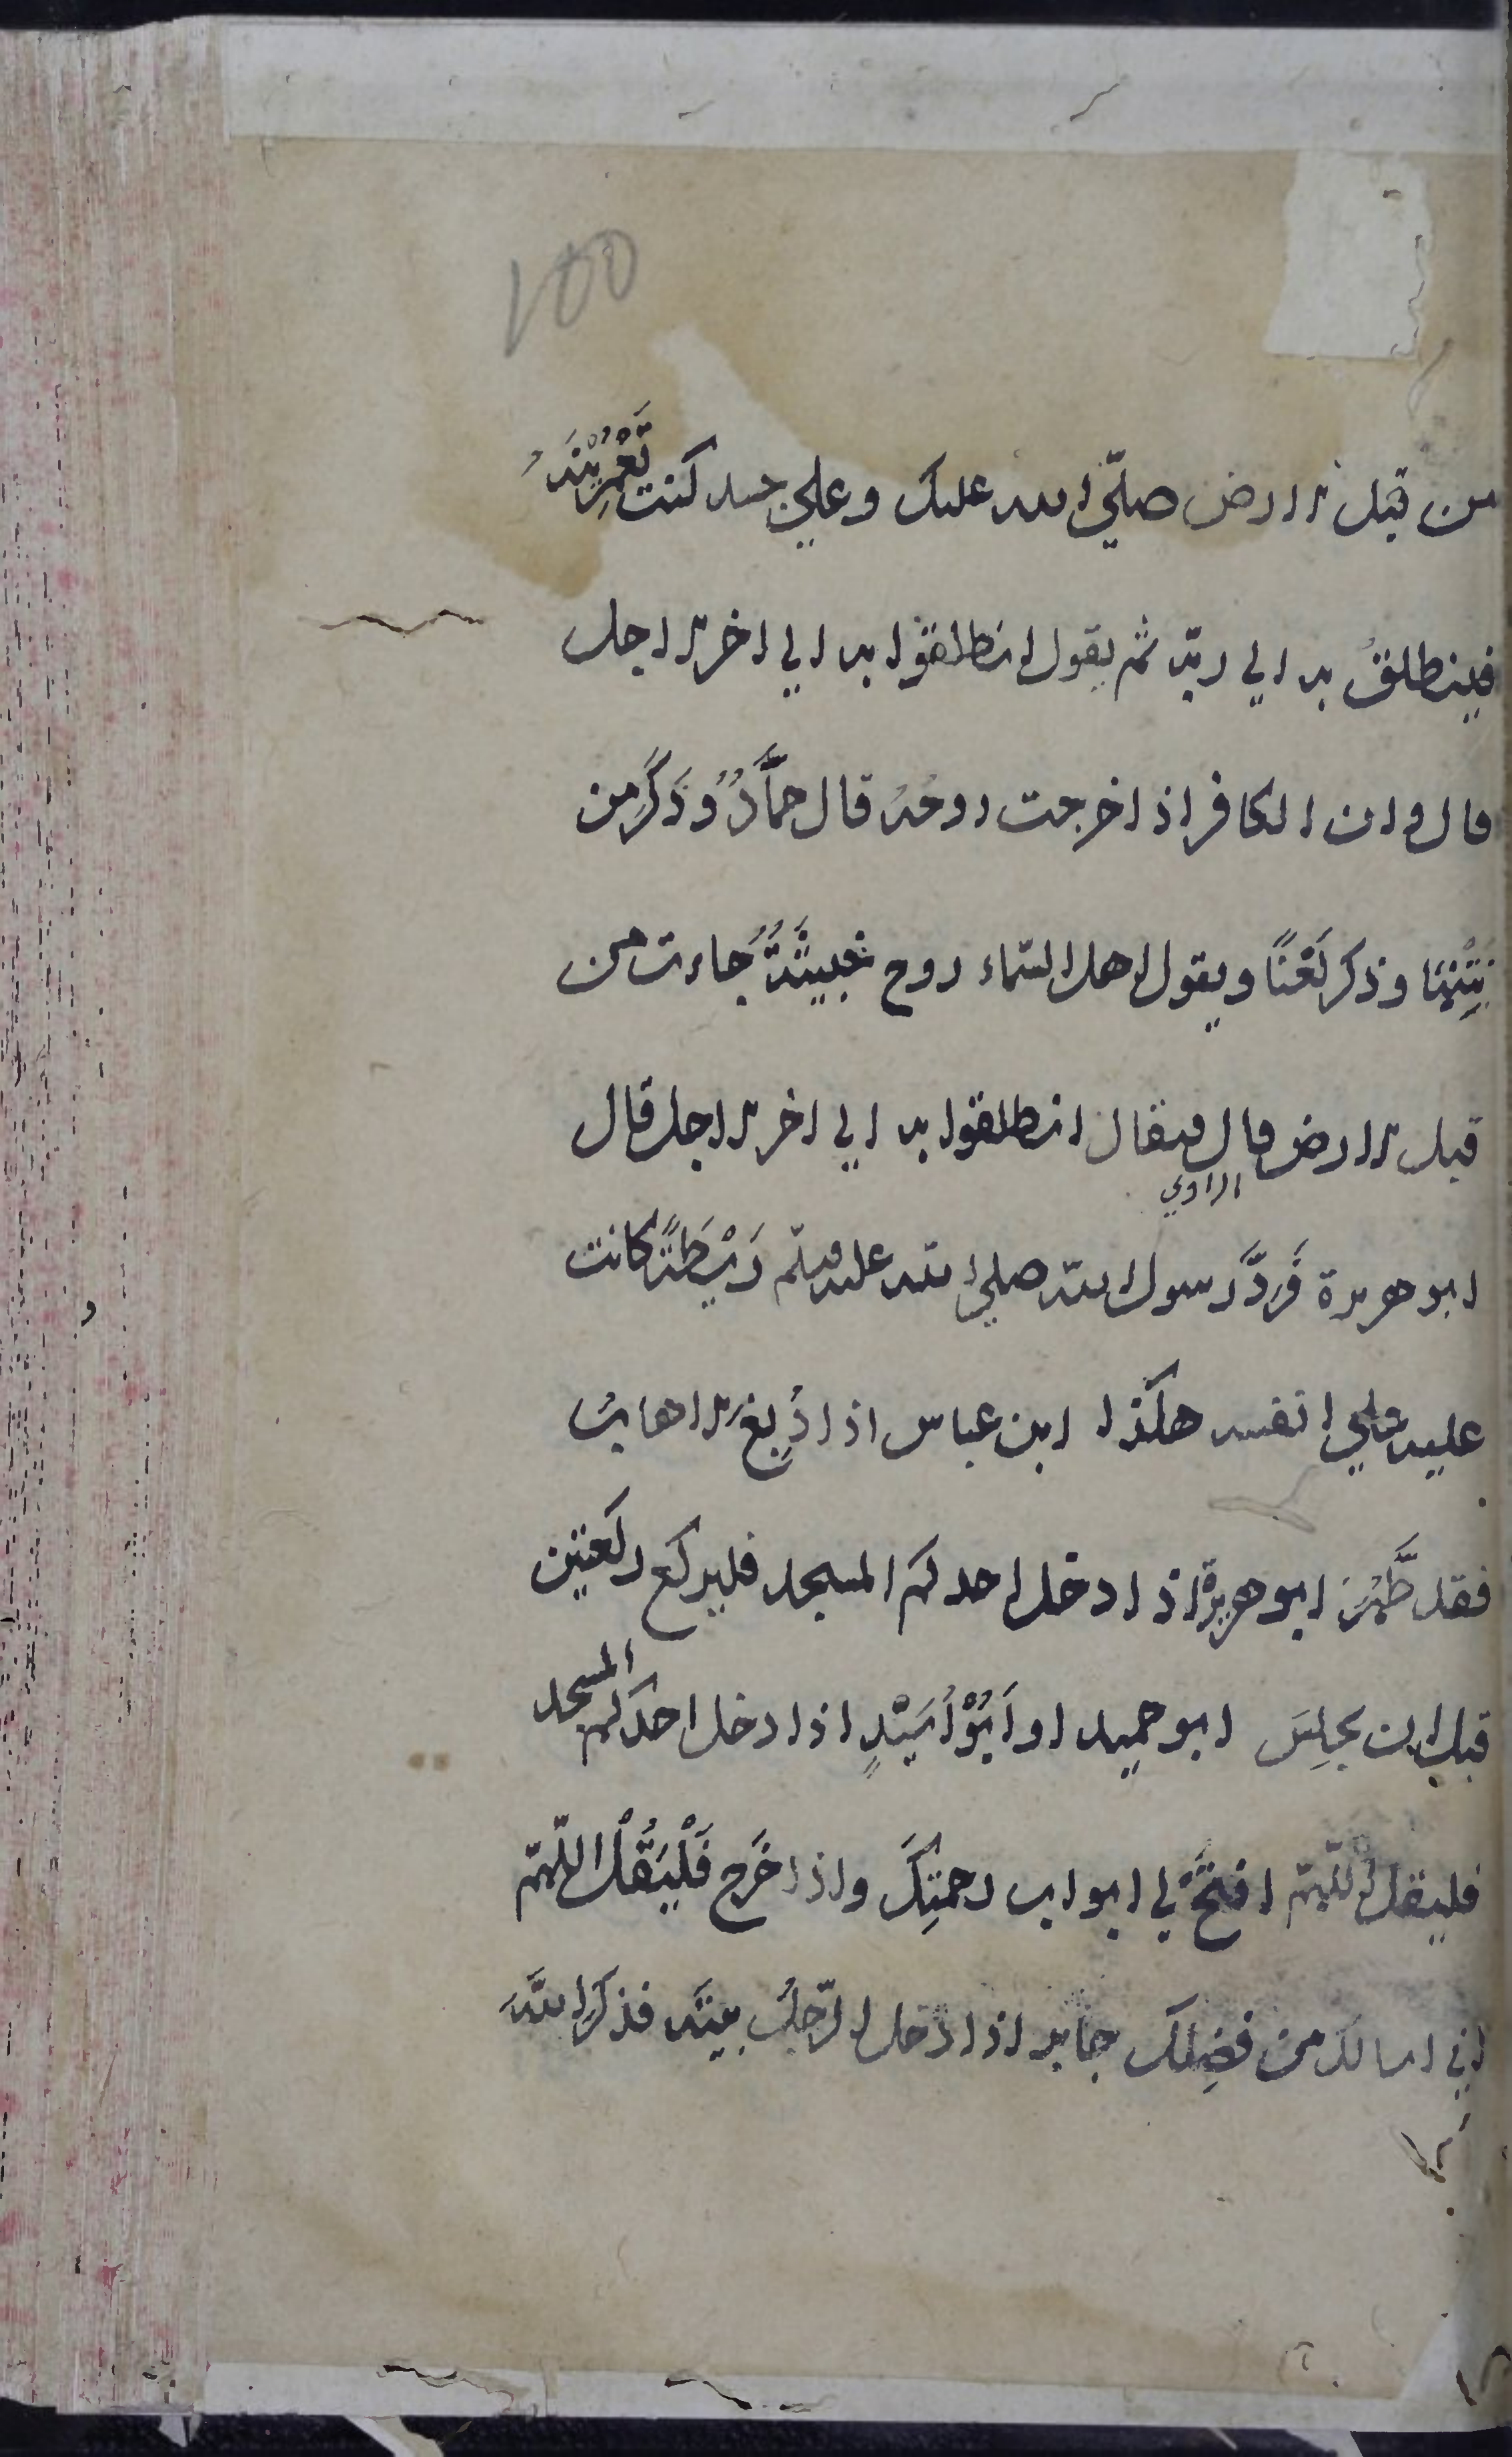 100
من قبل الارض صلّي الله عليك وعلي جسد كنت تَعْمُرِيْنَهُ
فينطلقُ به الي ربّه ثم يقول انطلقوا به الي اخر الاجل
قال وان الكافر اذا خرجت روحُهُ قال حمَّادٌ وَذَكَرَ من
نَتْنِهَا وذكر لَعْنًا ويقول اهل السّماء روح خَبِيْثَةٌ جاءت من
قبل الارض قال فيقال انطلقوا به الي اخر الاجل قال
الراوي
ابو هريرة فَرَدَّ رسول الله صلي الله عليه وسلّم رَيْطَةً كانت
عليه علي انفه هكذا ابن عباس اذا دُبِغَ الاهابُ
فقد طَهُرَ ابو هريرة اذا دخل احدكم المسجد فليركع ركعتين
قبل ان يجلِسَ ابو حميد او اَبُوْ اُسَيْدٍ اذا دخل احدكم المسجد
فليقل اللّهمّ افتَحْ لي ابواب رحمتِكَ واذا خَرَجَ فَلْيَقُلْ اللّهمّ
اني اسالك من فضلِك جابر اذا دخل الرّجلُ بيتَه فذكَرَ اللهَ